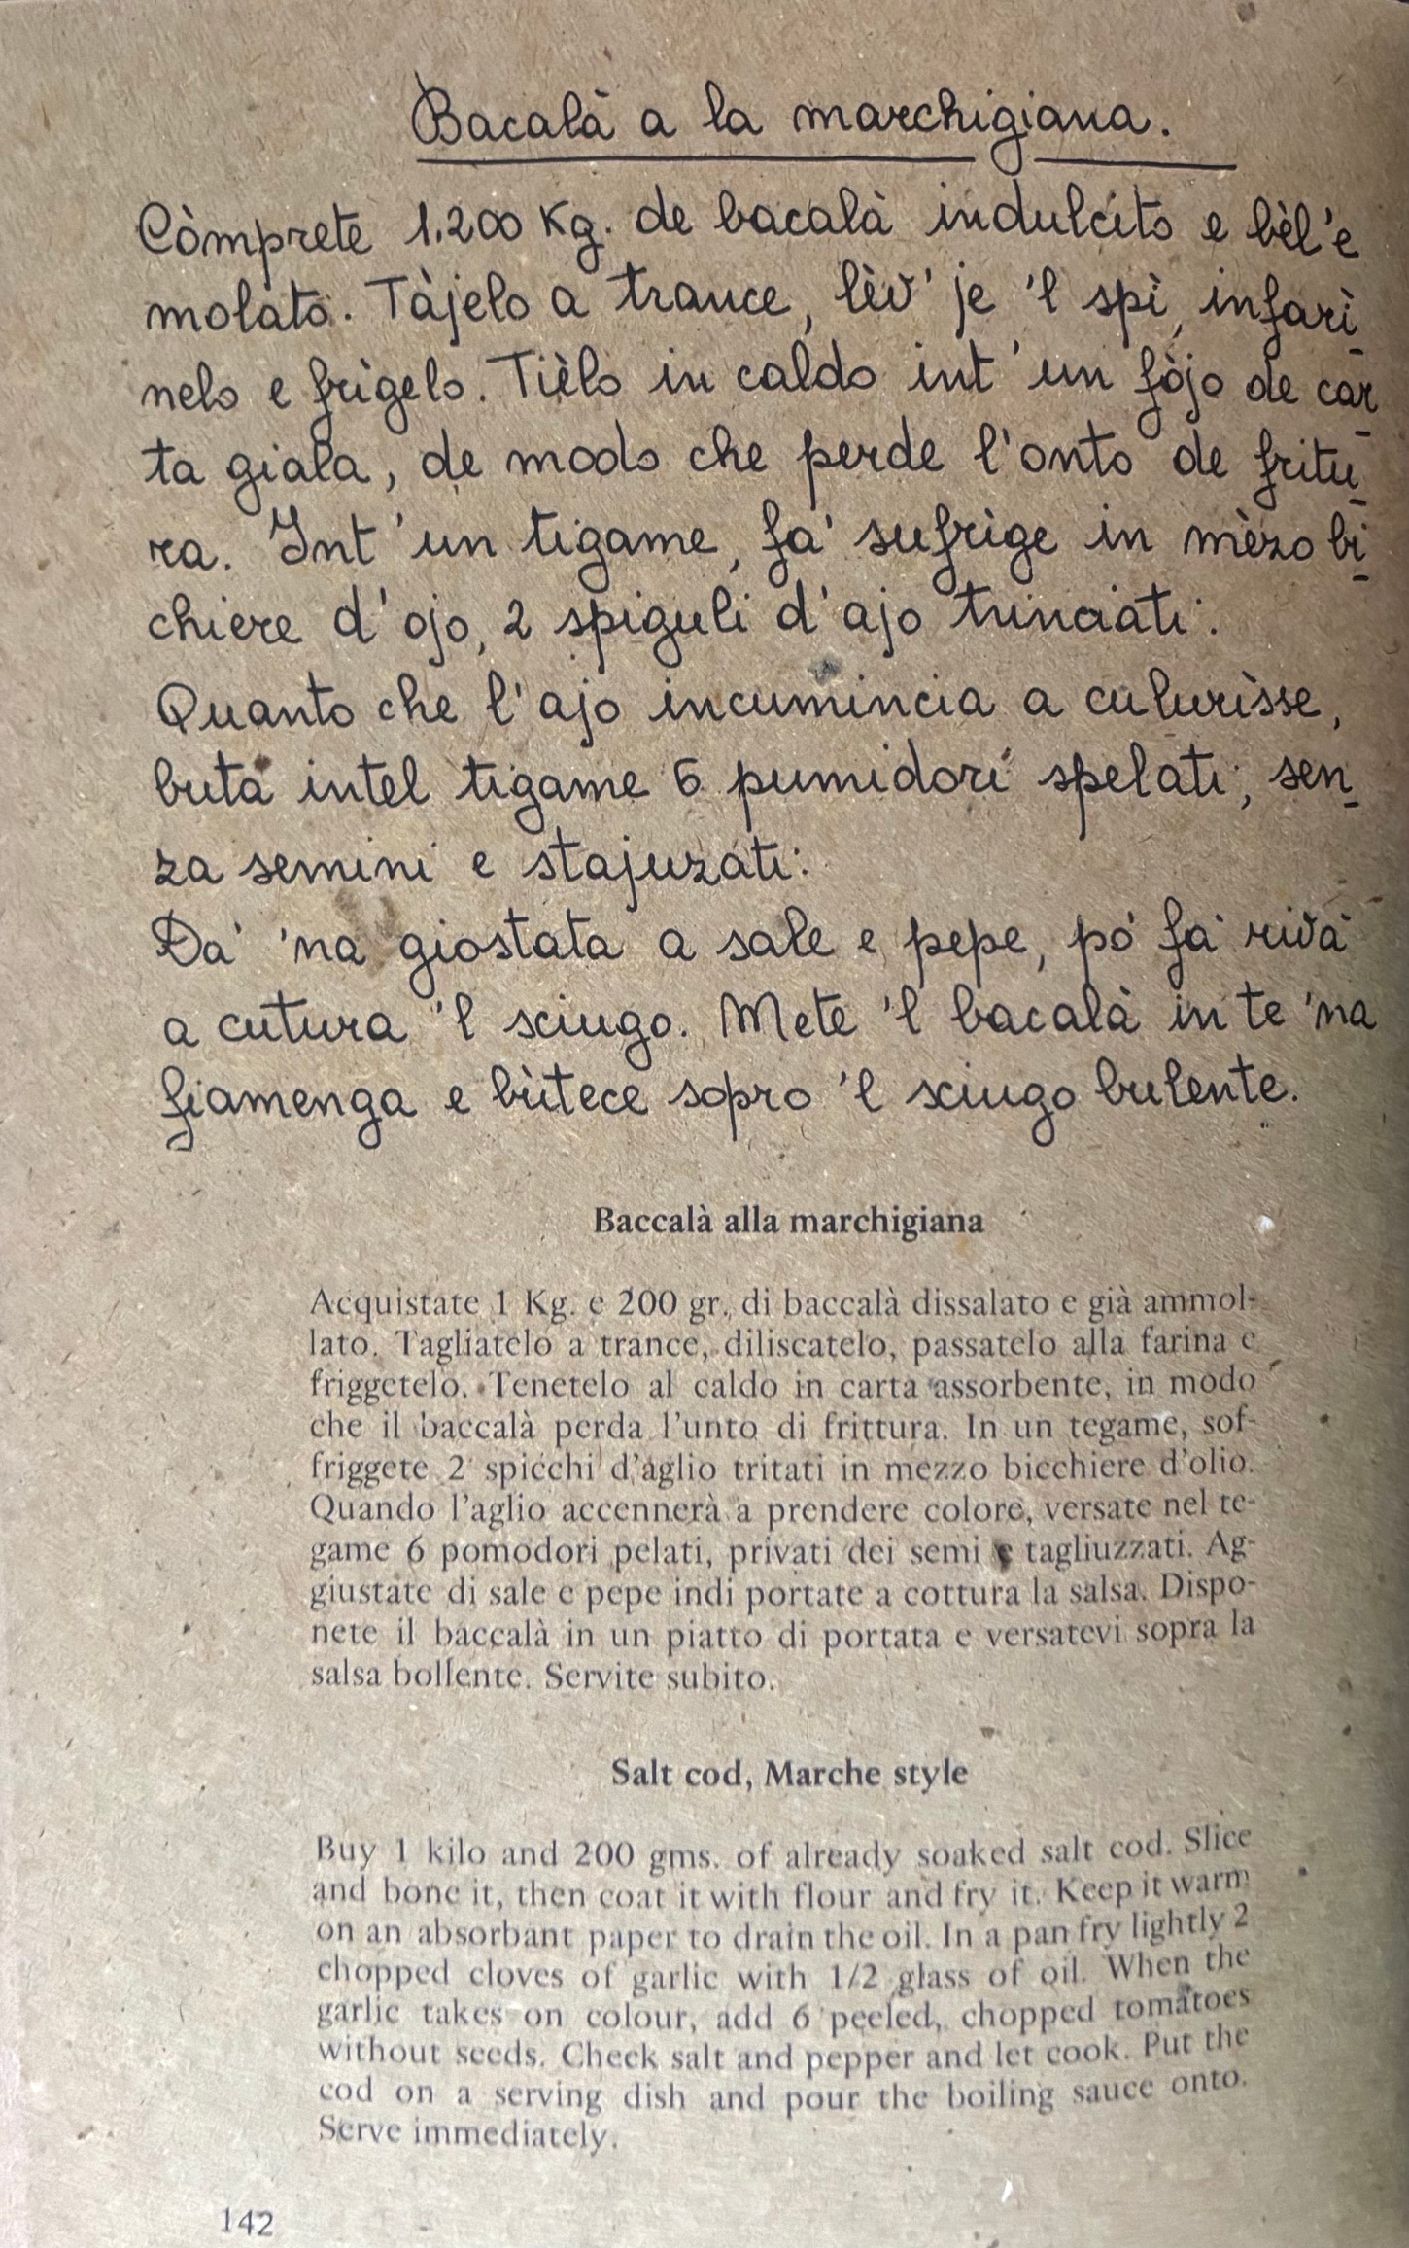 Bacalà a la marchigiana.
Còmprete 1.200 Kg. de bacalà indulcito e bèl'e
molato. Tàjelo a trance, lèv'je 'l spì, infarì_
nelo e frìgelo. Tièlo in caldo int'un fòjo de car_
ta giala, de modo che perde l'onto de fritu_
ra. Int'un tigame, fa' sufrìge in mèzo bi_
chiere d'ojo, 2 spiguli d'ajo trinciati.
Quanto che l'ajo incumincia a culurìsse,
buta intel tigame 6 pumidori spelati, sen_
za semini e stajuzati.
Da' 'na giostata a sale e pepe, pò fa rivà
a cutura 'l sciugo. Mete 'l bacalà in te 'na
fiamenga e bùtece sopro 'l sciugo bulente.
Baccalà alla marchigiana
Acquistate 1 Kg. e 200 gr. di baccalà dissalato e già ammol-
lato. Tagliatelo a trance, diliscatelo, passatelo alla farina e
friggetelo. Tenetelo al caldo in carta assorbente, in modo
che il baccalà perda l'unto di frittura. In un tegame, sof-
friggete 2 spicchi d'aglio tritati in mezzo bicchiere d'olio.
Quando l'aglio accennerà a prendere colore, versate nel te-
game 6 pomodori pelati, privati dei semi e tagliuzzati. Ag-
giustate di sale e pepe indi portate a cottura la salsa. Dispo-
nete il baccalà in un piatto di portata e versatevi sopra la
salsa bollente. Servite subito.
Salt cod, Marche style
Buy 1 kilo and 200 gms. of already soaked salt cod. Slice
and bone it, then coat it with flour and fry it. Keep it warm
on an absorbant paper to drain the oil. In a pan fry lightly 2
chopped cloves of garlic with 1/2 glass of oil. When the
garlic takes on colour, add 6 peeled, chopped tomatoes
without seeds. Check salt and pepper and let cook. Put the
cod on a serving dish and pour the boiling sauce onto.
Serve immediately.
142